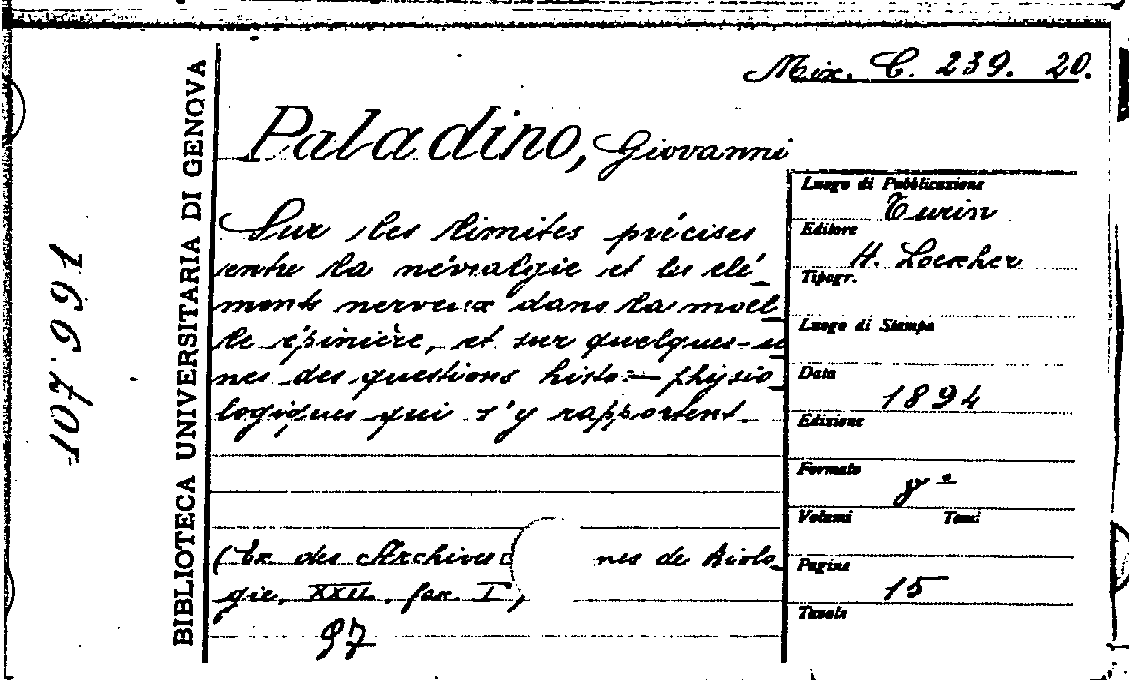 Mix. C. 239. 20.
BIBLIOTECA UNIVERSITARIA DI GENOVA
107991
Paladino, Giovanni
Sur les limites précises
entre la névralgie et les élé-
ments nerveux dans la moel-
le épinière, et sur quelques-u
nes des questions histo-physio-
logiques qui s'y rapportent.
(Ex des Archives nes de Biolo-
gie, XXII, fax. I,
97
Luogo di Pubblicazione
Turin
Editore
H. Loescher
Tipogr.
Luogo di Stampa
Data
1894
Edizione
Formato
8°
Volumi Tomi
Pagine
15
Tavole